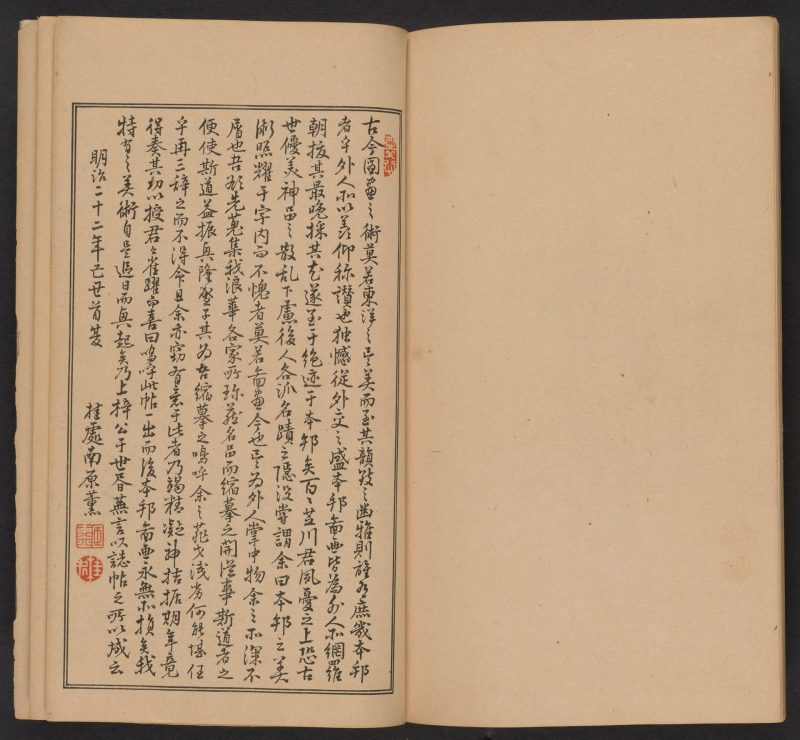 古今圖畫之術莫若東洋之善美而至其韻致之幽雅則誰不庶幾本邦
者乎外人所以羨仰称讃也独憾従外交之盛本邦畫皆為外人所網羅
朝抜其最晩採其尤遂至于絶迹于本邦矣百々芝川君夙憂之上恐古
世優美神品之散乱下慮後人各派名蹟之隠没嘗謂余曰本邦之美
術照耀于宇内而不愧者莫若畫今也為外人掌中物余之所深不
屑也吾欲先蒐集我浪華各家所珍蔵名品而縮摹之開従事斯道者之
便使斯道益振興隆盛子其為吾縮摹之嗚呼余之菲才浅劣何能堪任
乎再三辞之而不得命且余亦窃有意于此者乃竭精凝神拮据期年竟
得奏其功以授君々雀躍而喜曰嗚呼此帖一出而後本邦畫永無所損矣我
特有之美術自是追日而興起矣乃上梓公于世吾蕪言以誌帖之所以成云
明治二十二年己丑首夏
桂處南原薫